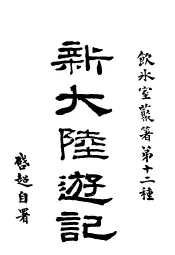 飲冰室叢著第十二種
新大陸遊記
啓超自署